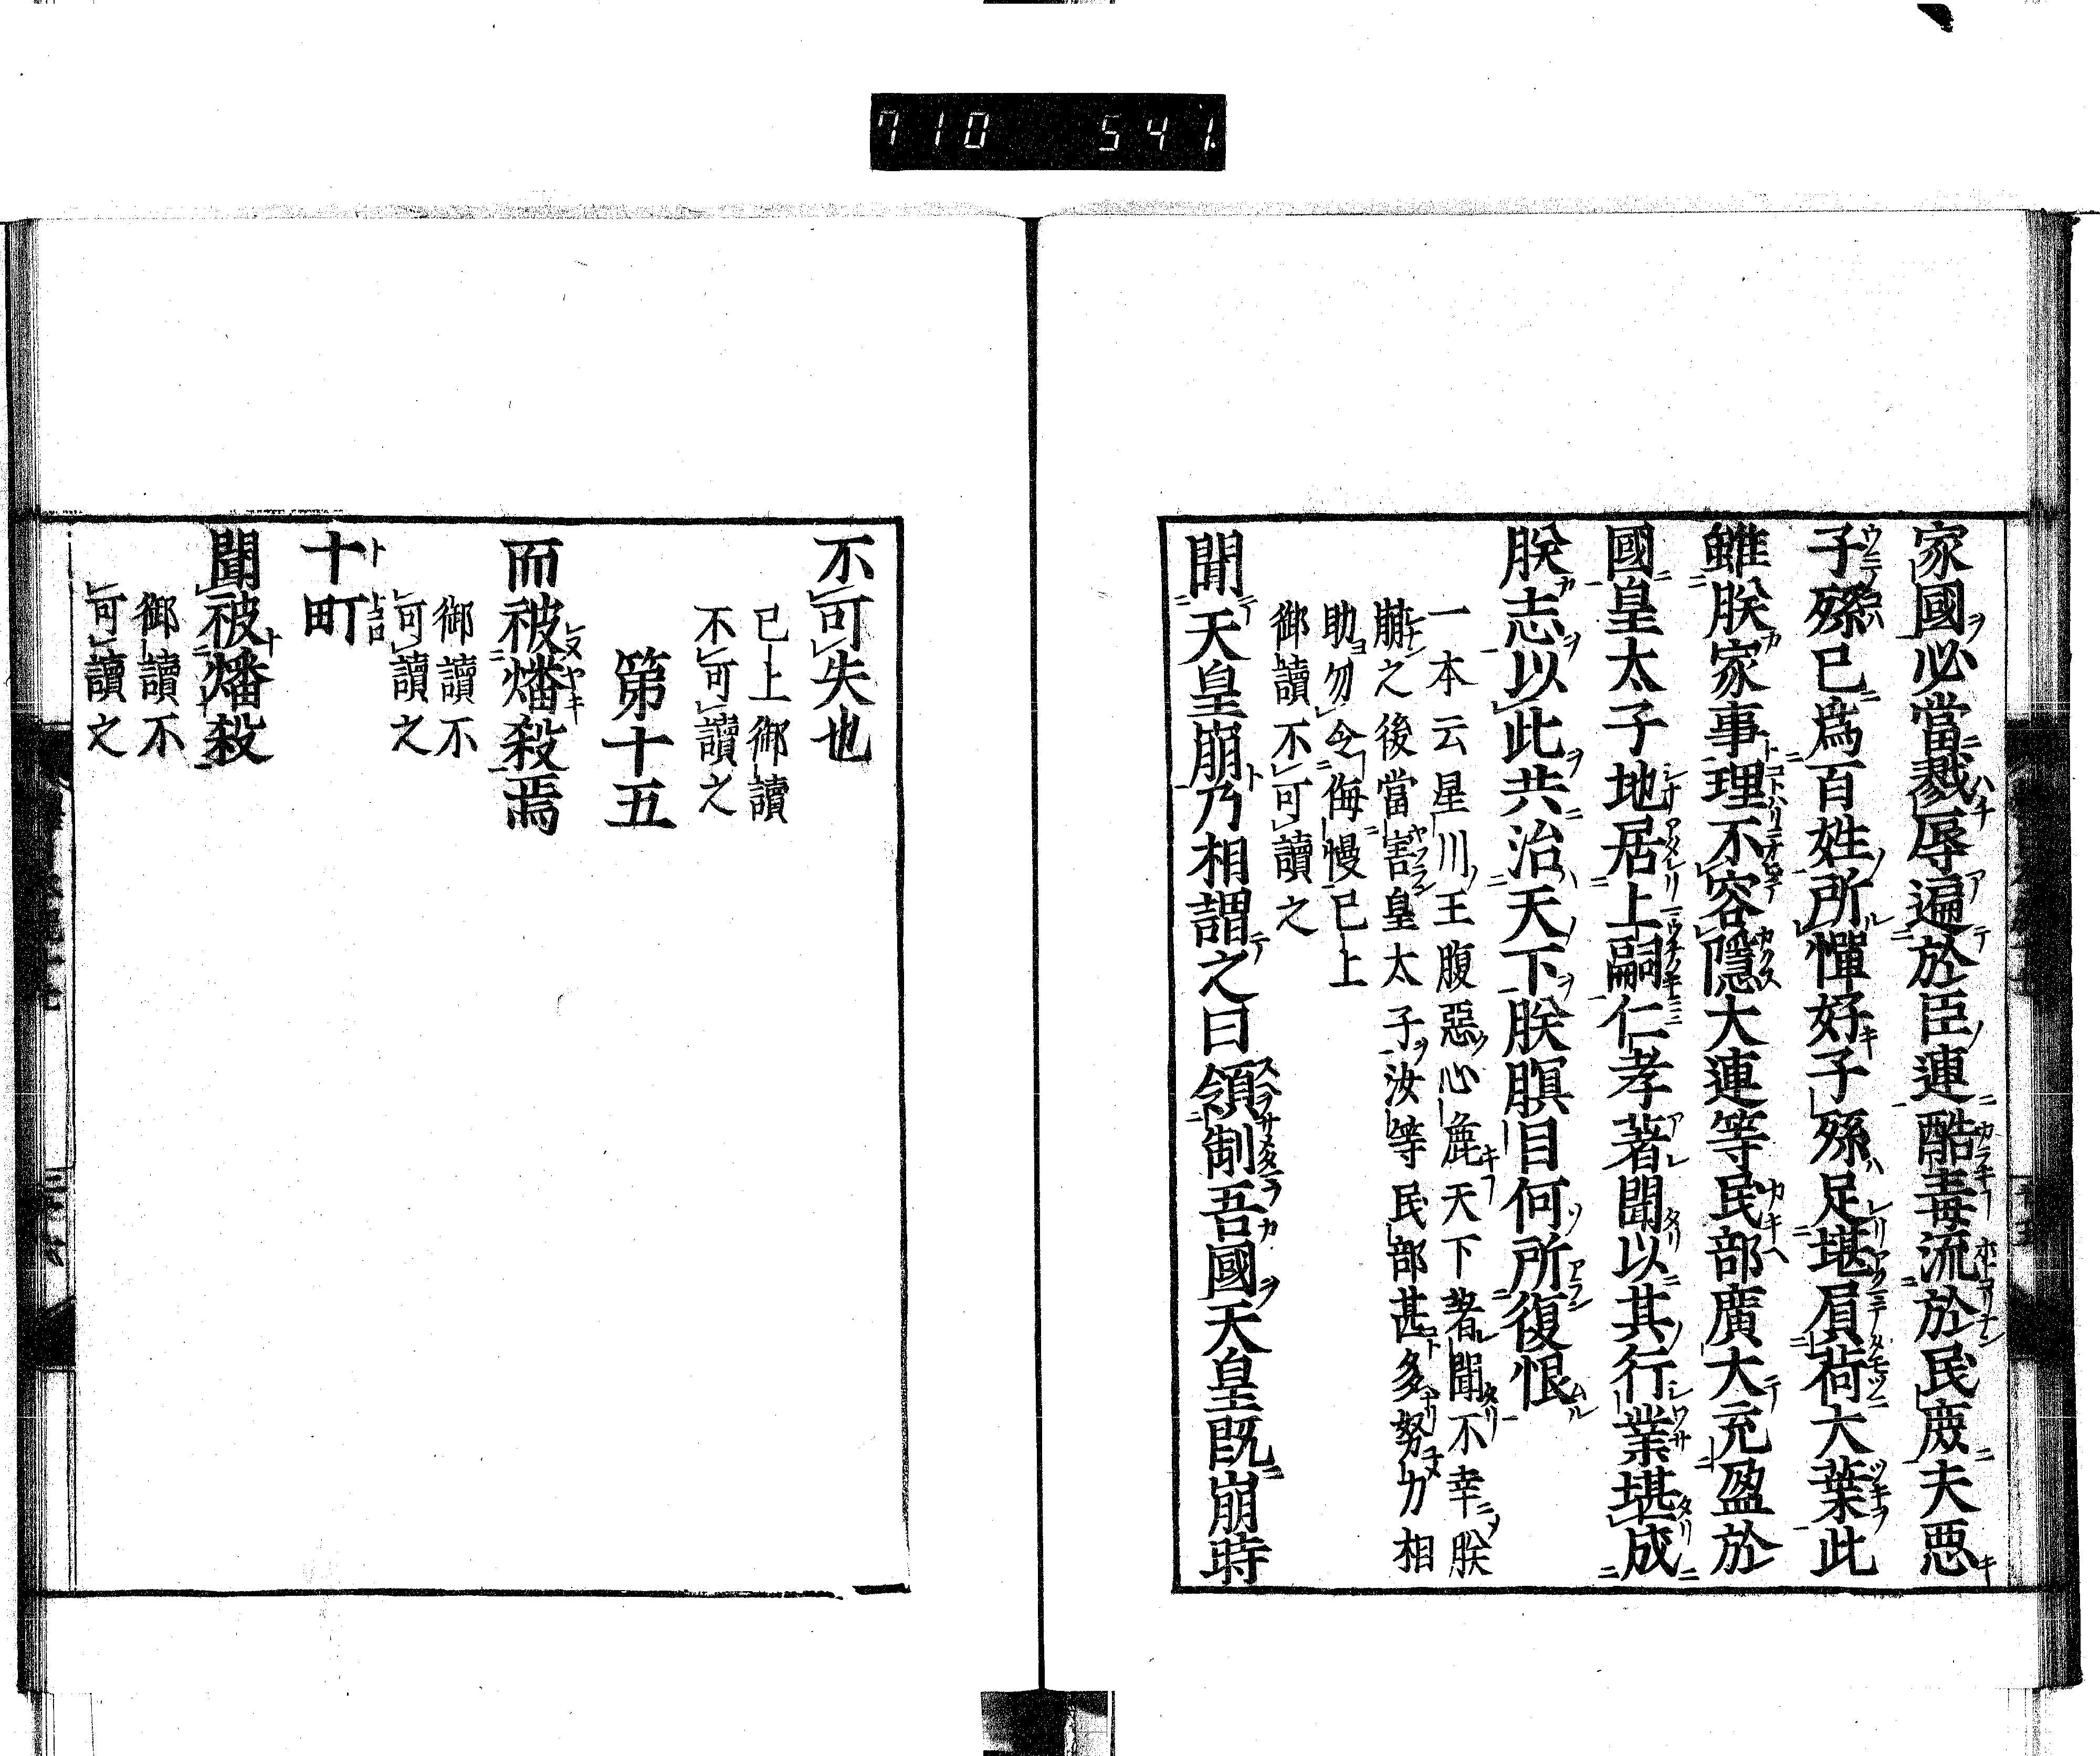 710 541
家國必當戮辱遍於臣連酷毒流於民庶夫悪
子孫已爲百姓所憚好子孫足堪負荷大業此
雖朕家事理不容隠大連等民部廣大充盈於
國皇太子地居上嗣仁孝著聞以其行業堪成
朕志以此共治天下朕瞑目何所復恨
一本云星川王腹惡心麁天下著聞不幸朕
崩之後當害皇太子汝等民部甚多努力相
助勿令侮慢已上
御讀不可讀之
聞天皇崩乃相謂之曰領制吾國天皇既崩時
不可失也
已上御讀
不可讀之
第十五
而被燔殺焉
御讀不
可讀之
十町
聞被燔殺
御讀不
可讀之